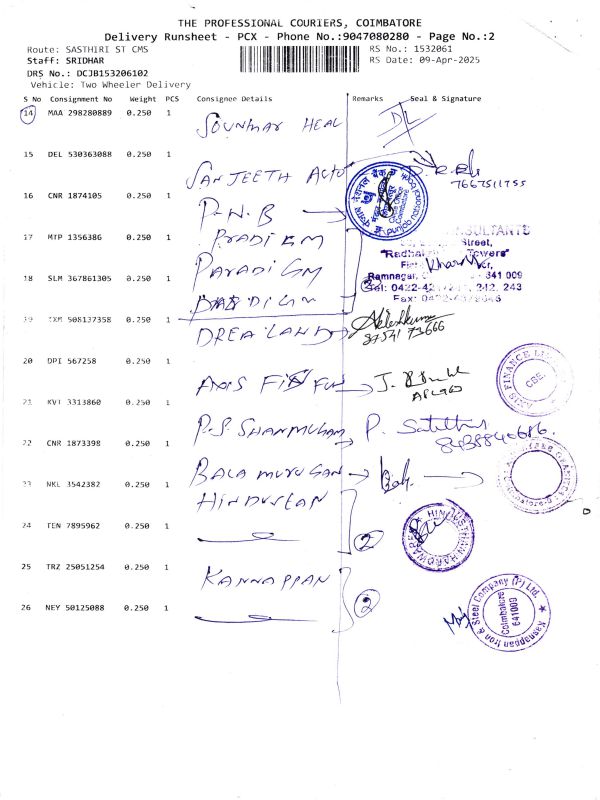 THE PROFESSIONAL COURIERS, COIMBATORE
Delivery Runsheet - PCX - Phone No.:9047080280 - Page No.:2
Route: SASTHIRI ST CMS
RS No.: 1532061
Staff: SRIDHAR
RS Date: 09-Apr-2025
DRS No.: DCJB153206102
Vehicle: Two Wheeler Delivery
S No Consignment No Weight PCS Consignee Details Remarks Seal & Signature
14 MAA 298280889 0.250 1
SOUNDAR HEAL
D/L
15 DEL 530363088 0.250 1
SANJEETH AUTO
7667511755
16 CNR 1874105 0.250 1
P.N.B
punjab national bank
17 MTP 1356386 0.250 1
PRADIGM
CONSULTANTS
Street,
"Radha Towers"
18 SLM 367861305 0.250 1
PARADIGM
Ramnagar, 641 009
Tel: 0422-42 312, 243
Fax: 0422-
PARADIGM
19 IXM 508137358 0.250 1
DREAMLAND
87541 73666
20 DPI 567258 0.250 1
AXIS FIN FUN
J.
FINANCE LI
CBE.
21 KVT 3313860 0.250 1
P.S. SHANMUGAM
P.
22 CNR 1873398 0.250 1
BALA MURUGAN
23 NKL 3542382 0.250 1
HINDUSTAN
24 TEN 7895962 0.250 1
2
HINDUSTHAN HARDWARE
25 TRZ 25051254 0.250 1
KANNAPPAN
2
26 NEY 50125088 0.250 1
Kannappan Iron & Steel Company (P) Ltd.
Coimbatore
641009